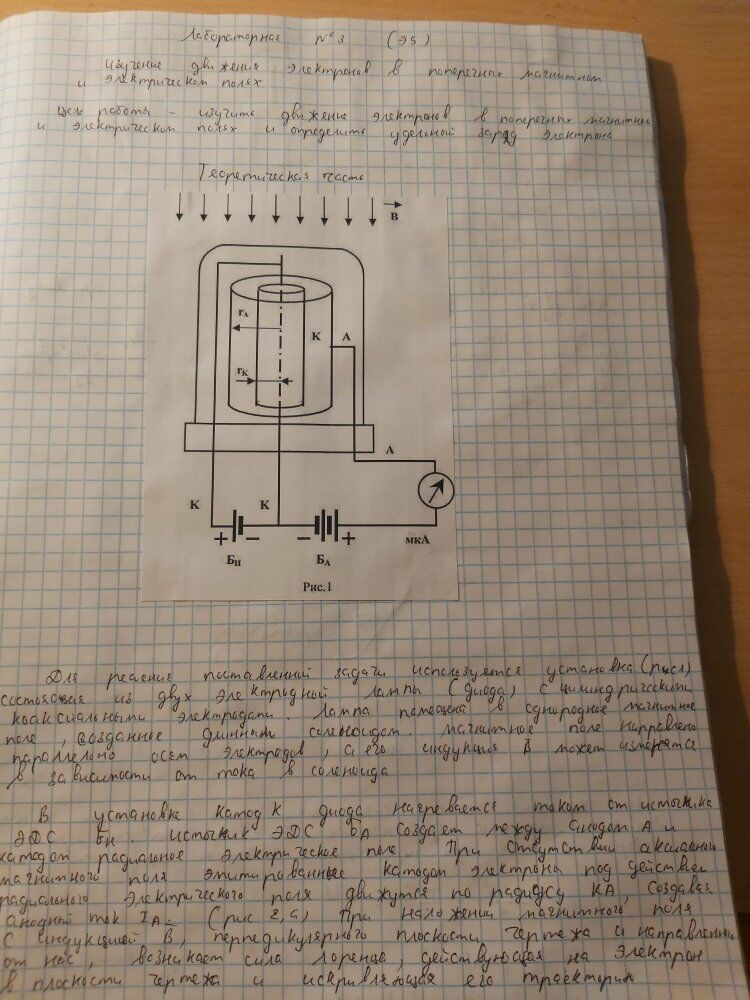 Лабораторная №3 (Э5)
Изучение движения электронов в поперечных магнитном
и электрическом полях
Цель работы - изучить движение электронов в поперечных магнитном
и электрическом полях и определить удельный заряд электрона
Теоретическая часть
B
rА
К А
rК
А
К К
+ − − +
БН БА мкА
Рис.1
Для решения поставленной задачи используется установка (рис1)
состоящая из двух электродной лампы (диода) с цилиндрическими
коаксиальными электродами. Лампа помещена в однородное магнитное
поле, созданное длинным соленоидом. магнитное поле направлено
параллельно осям электродов, а его индукция B может изменятся
в зависимости от тока в соленоида
В установке катод К диода нагревается током от источника
ЭДС Бн. источник ЭДС БА создает между анодом А и
катодом радиальное электрическое поле. При отсутствии аксиального
магнитного поля эмитированные катодом электроны под действием
радиального электрического поля движутся по радиусу КА, создавая
анодный ток IА. (рис 2, а) При наложении магнитного поля
с индукцией B, перпедикулярного плоскости чертежа и направленны
от нас, возникает сила лоренца, действующая на электрон
в плоскости чертежа и искривляющая его траекторию